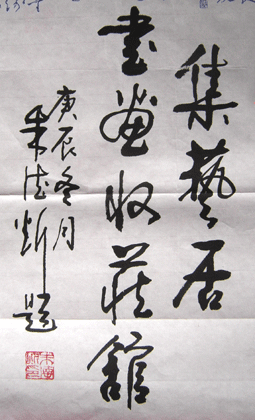 集藝居
書畫收藏館
庚辰冬月
朱德炘題